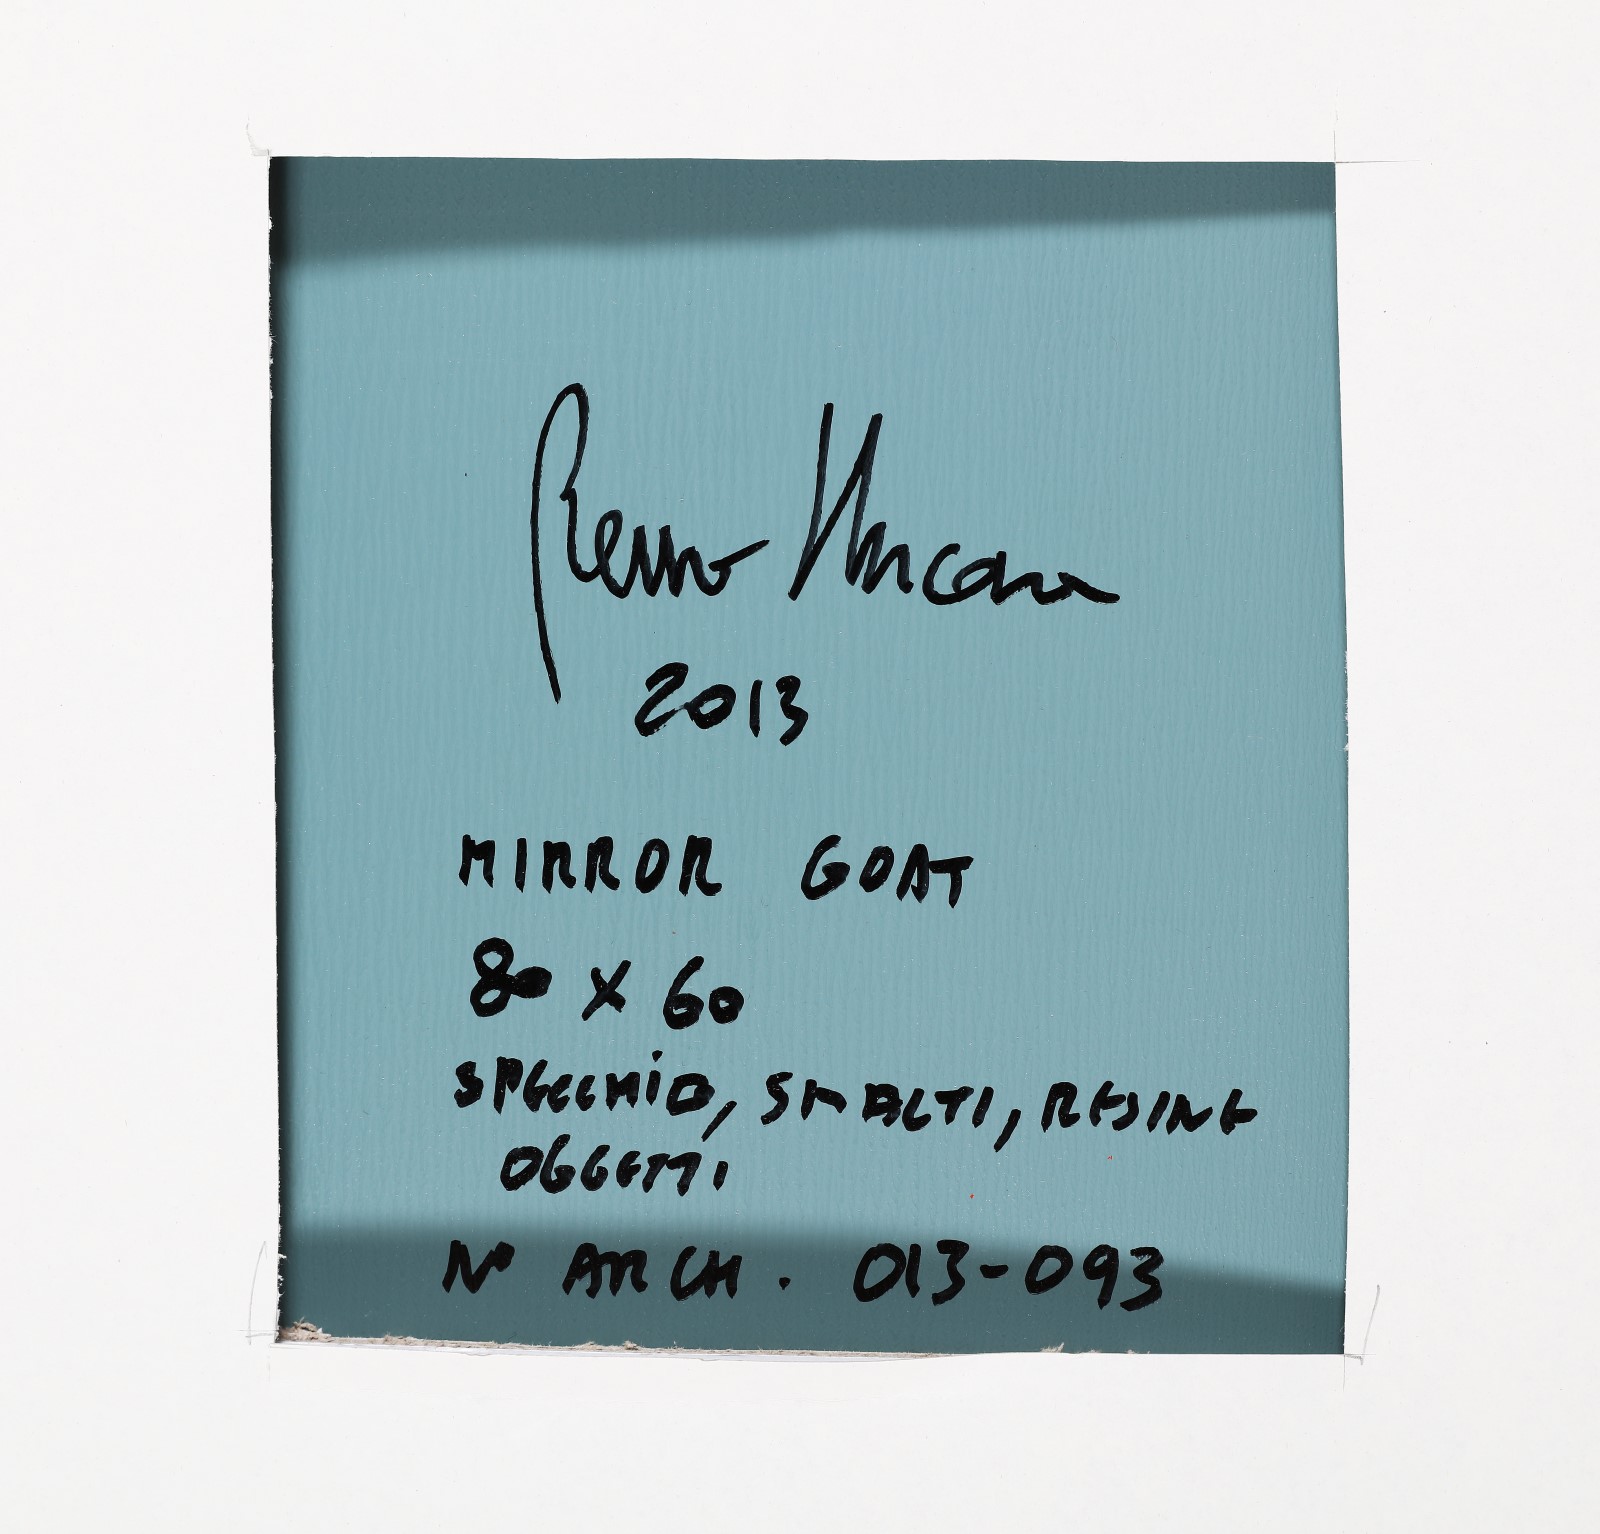 2013
MIRROR GOAT
80 x 60
SPECCHIO, SMALTI, RESINE
OGGETTI
N° ARCH. 013-093